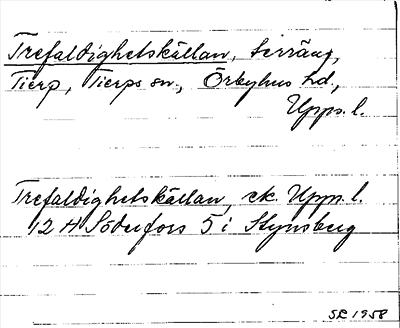 Trefaldighetskällan, terräng,
Tierp, Tierps sn., Örbyhus hd.,
Upps. l.
Trefaldighetskällan, ek. Upps. l.
12 H Söderfors 5 i Stynsberg
SR 1958